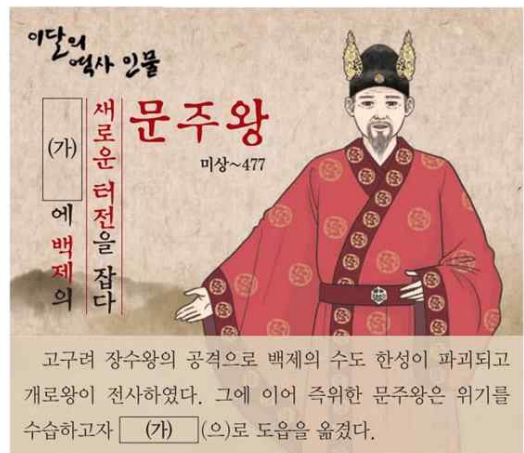 이달의
역사 인물
문주왕
미상~477
새로운 터전을 잡다
(가)에 백제의
고구려 장수왕의 공격으로 백제의 수도 한성이 파괴되고
개로왕이 전사하였다. 그에 이어 즉위한 문주왕은 위기를
수습하고자 (가) (으)로 도읍을 옮겼다.